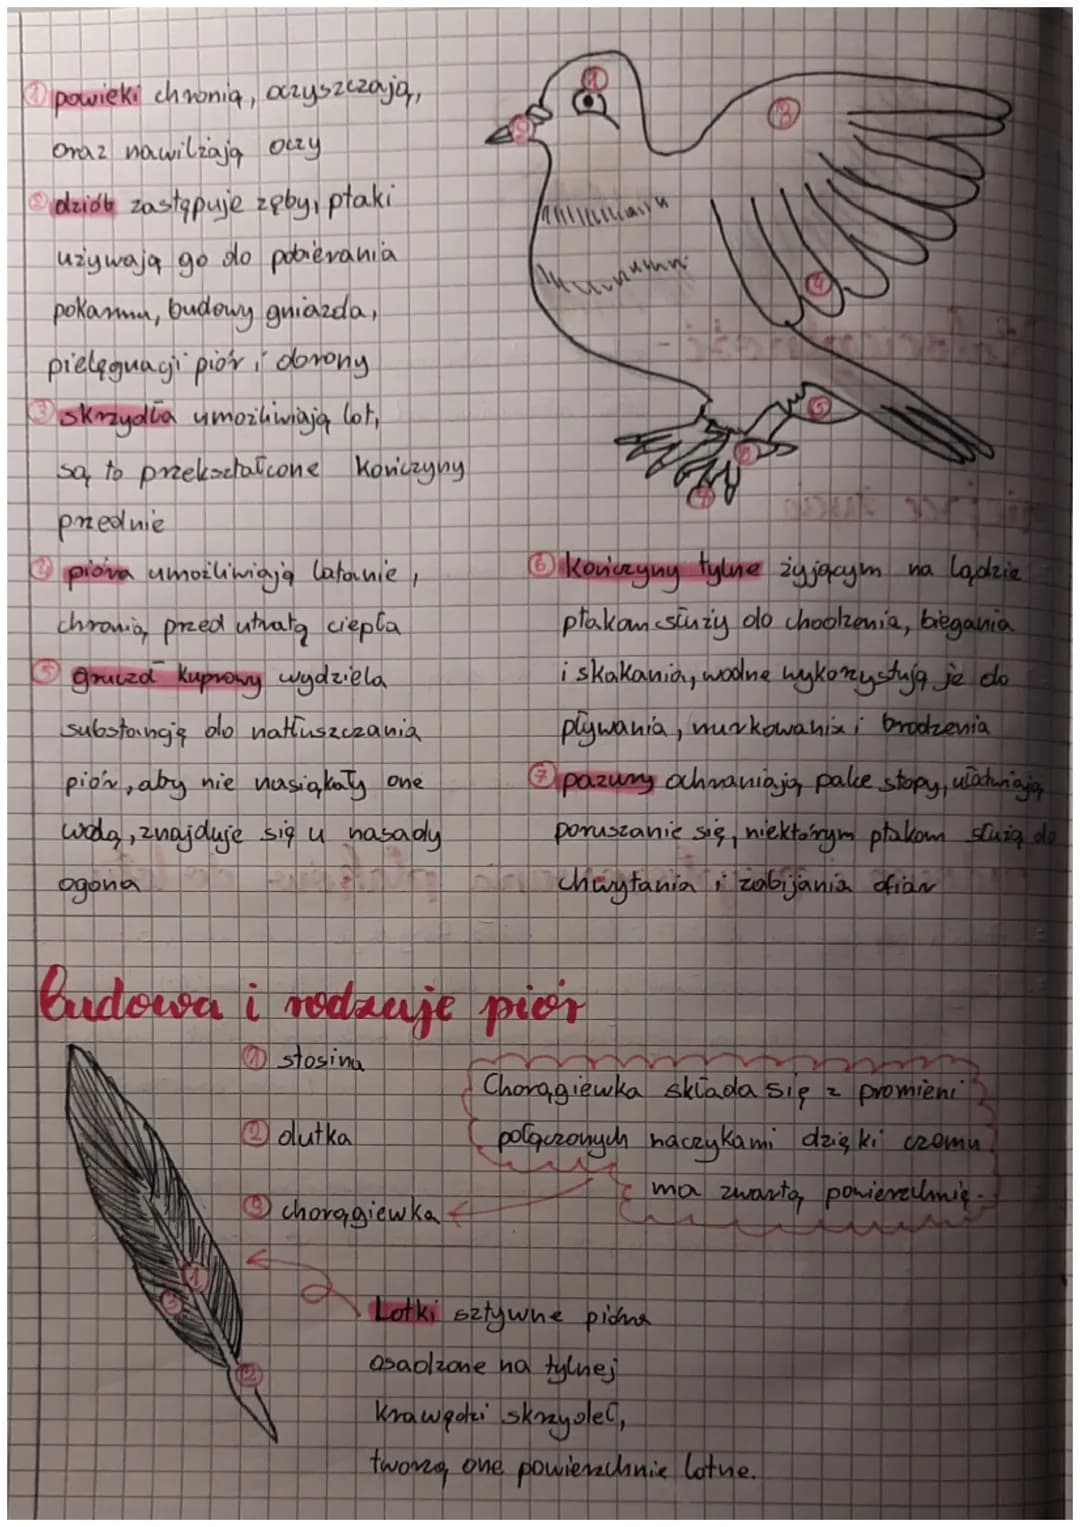 ① powieki chronią, oczyszczają,
oraz nawilżają oczy
② dziób zastępuje zęby, ptaki
używają go do pobierania
pokarmu, budowy gniazda,
pielęgnacji piór i obrony
③ skrzydła umożliwiają lot,
są to przekształcone kończyny
przednie
④ pióra umożliwiają latanie,
chronią przed utratą ciepła
⑤ gruczoł kuprowy wydziela
substancję do natłuszczania
piór, aby nie nasiąkały one
wodą, znajduje się u nasady
ogona
⑥ kończyny tylne żyjącym na lądzie
ptakom służy do chodzenia, biegania
i skakania, wodne wykorzystują je do
pływania, nurkowania i brodzenia
⑦ pazury ochraniają palce stopy, ułatwiają
poruszanie się, niektórym ptakom służą do
chwytania i zabijania ofiar
Budowa i rodzaje piór
① stosina
② dutka
③ chorągiewka
Chorągiewka składa się z promieni
połączonych haczykami dzięki czemu
ma zwartą powierzchnię.
Lotki sztywne pióra
osadzone na tylnej
krawędzi skrzydeł,
tworzą one powierzchnie lotne.